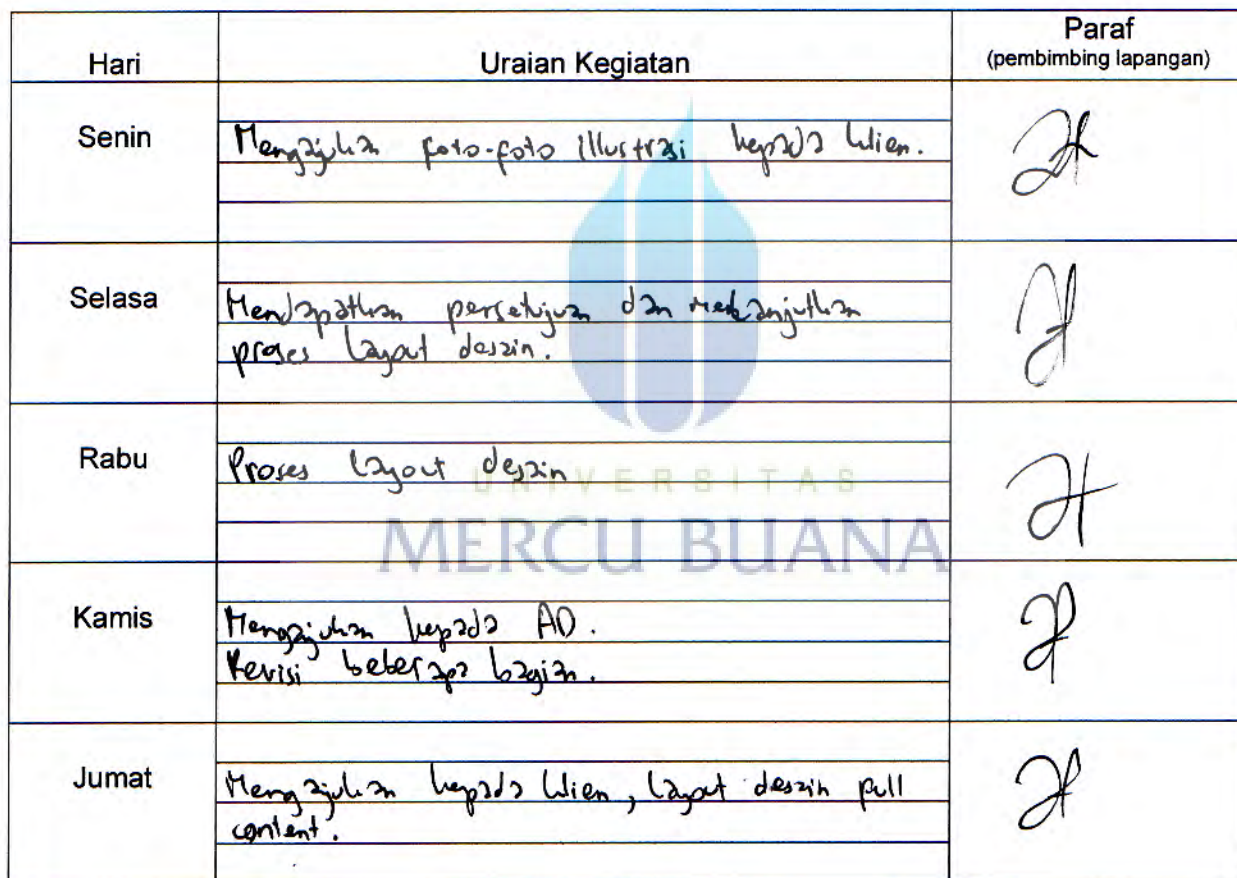 Hari Uraian Kegiatan Paraf
(pembimbing lapangan)
Senin Mengajukan foto-foto illustrasi kepada klien.
Selasa Mendapatkan persetujuan dan melanjutkan
proses layout desain.
Rabu Proses layout desain
UNIVERSITAS
MERCU BUANA
Kamis Mengajukan kepada AD.
Revisi beberapa bagian.
Jumat Mengajukan kepada klien, layout desain full
content.